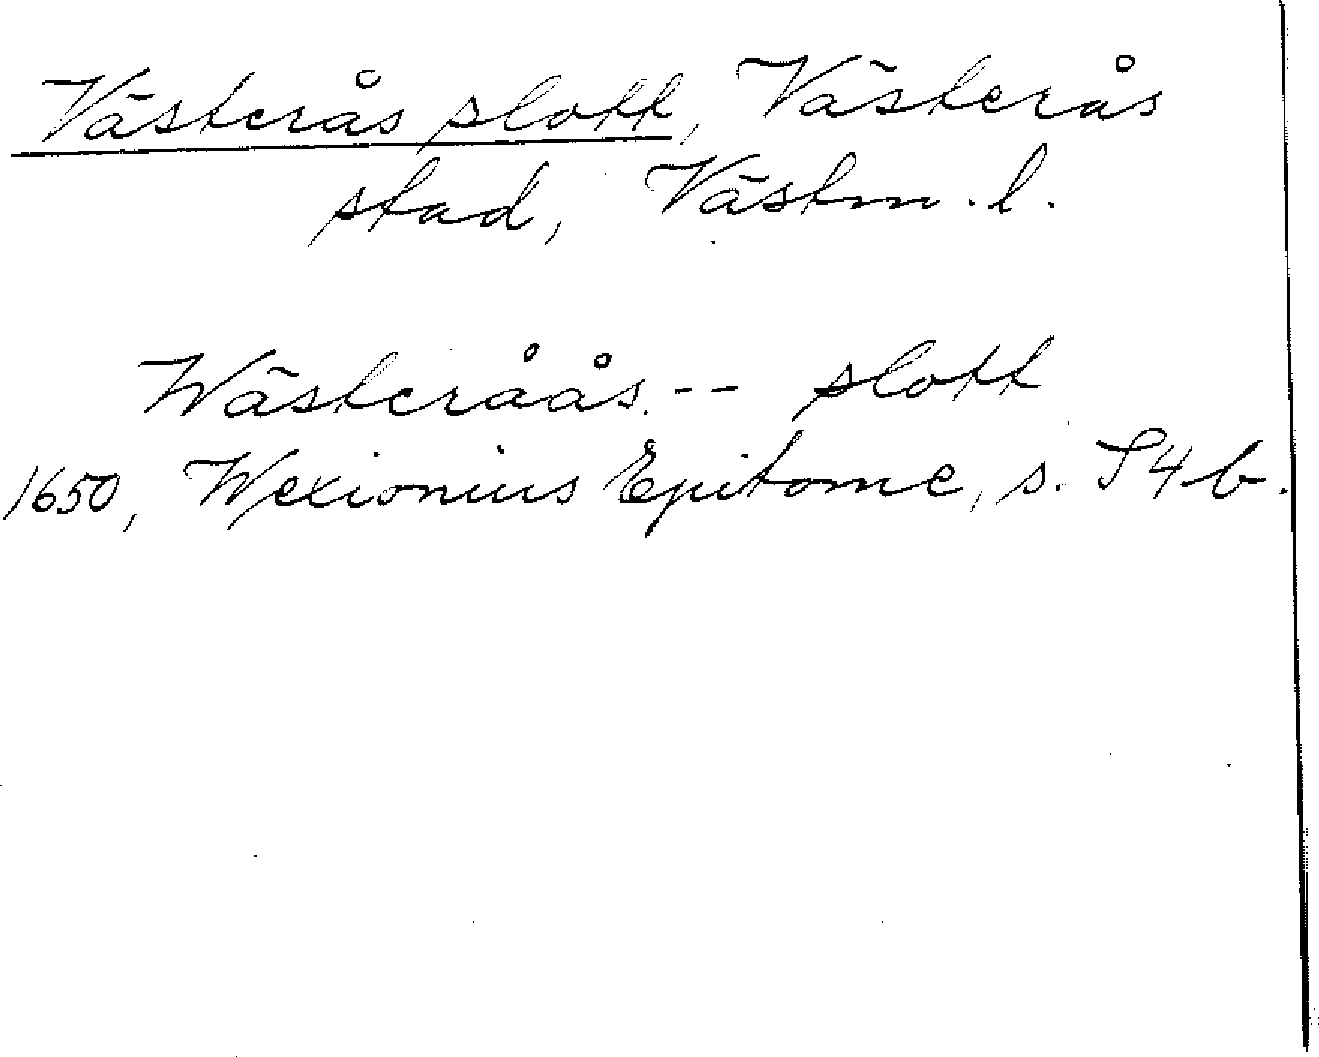 Västerås slott, Västerås
stad, Västm. l.
Wästeråås.-- slott
1650, Wexionius Epitome, s. S4b.